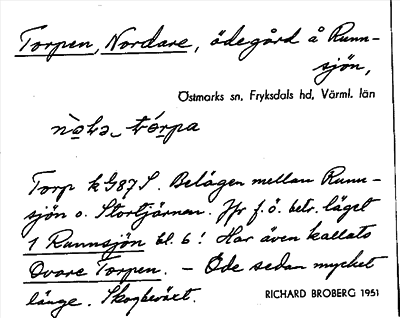 Torpen, Nordare, ödegård å Runn-
sjön,
Östmarks sn, Fryksdals hd, Värml. län
tórpa
Torp k G87S. Belägen mellan Runn-
sjön o. Stortjärnen. Jfr f. ö. betr. läget
1 Runnsjön bl. 6! Har även kallats
Övare Torpen. – Öde sedan mycket
länge. Skogbeväxt.
RICHARD BROBERG 1951